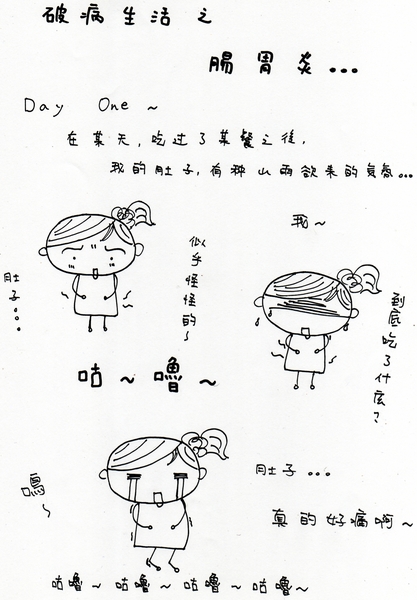 破病生活之
腸胃炎...
Day One~
在某天,吃过了某餐之後,
我的肚子,有种山雨欲来的氣感...
肚子...
似乎怪怪的~
我~
到底吃了什麼?
咕~嚕~
嗚~
肚子...
真的好痛啊~
咕嚕~咕嚕~咕嚕~咕嚕~